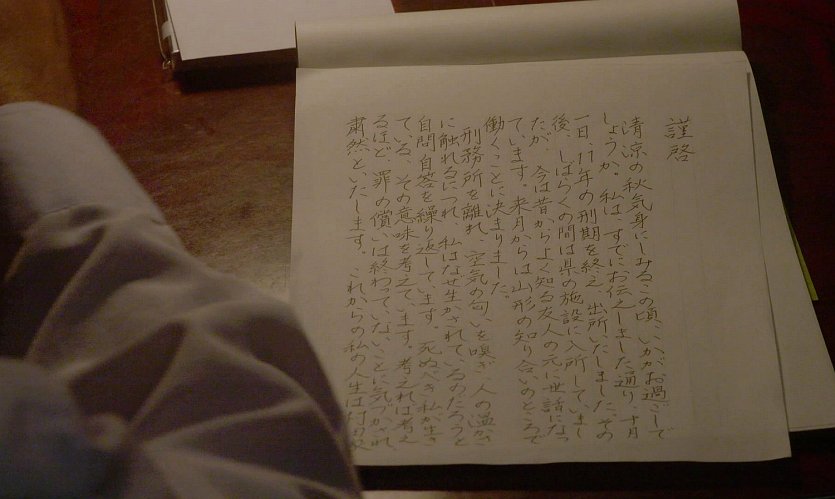 謹啓
清涼の秋気身にしみるこの頃、いかがお過ごしで
しょうか。私は、すでにお伝えしました通り、十月
一日、11年の刑期を終え、出所いたしました。その
後、しばらくの間は県の施設に入所していまし
たが、今は昔からよく知る友人の元に世話になっ
ています。来月からは山形の知り合いのところで
働くことに決まりました。
刑務所を離れ、空気の匂いを嗅ぎ、人の温かさ
に触れるにつれ、私はなぜ生かされているのだろうと
自問自答を繰り返しています。死ぬべき私が生き
ている、その意味を考えています。考えれば考え
るほど、罪の償いは終わっていないことに気づかされ、
粛然といたします。これからの私の人生は